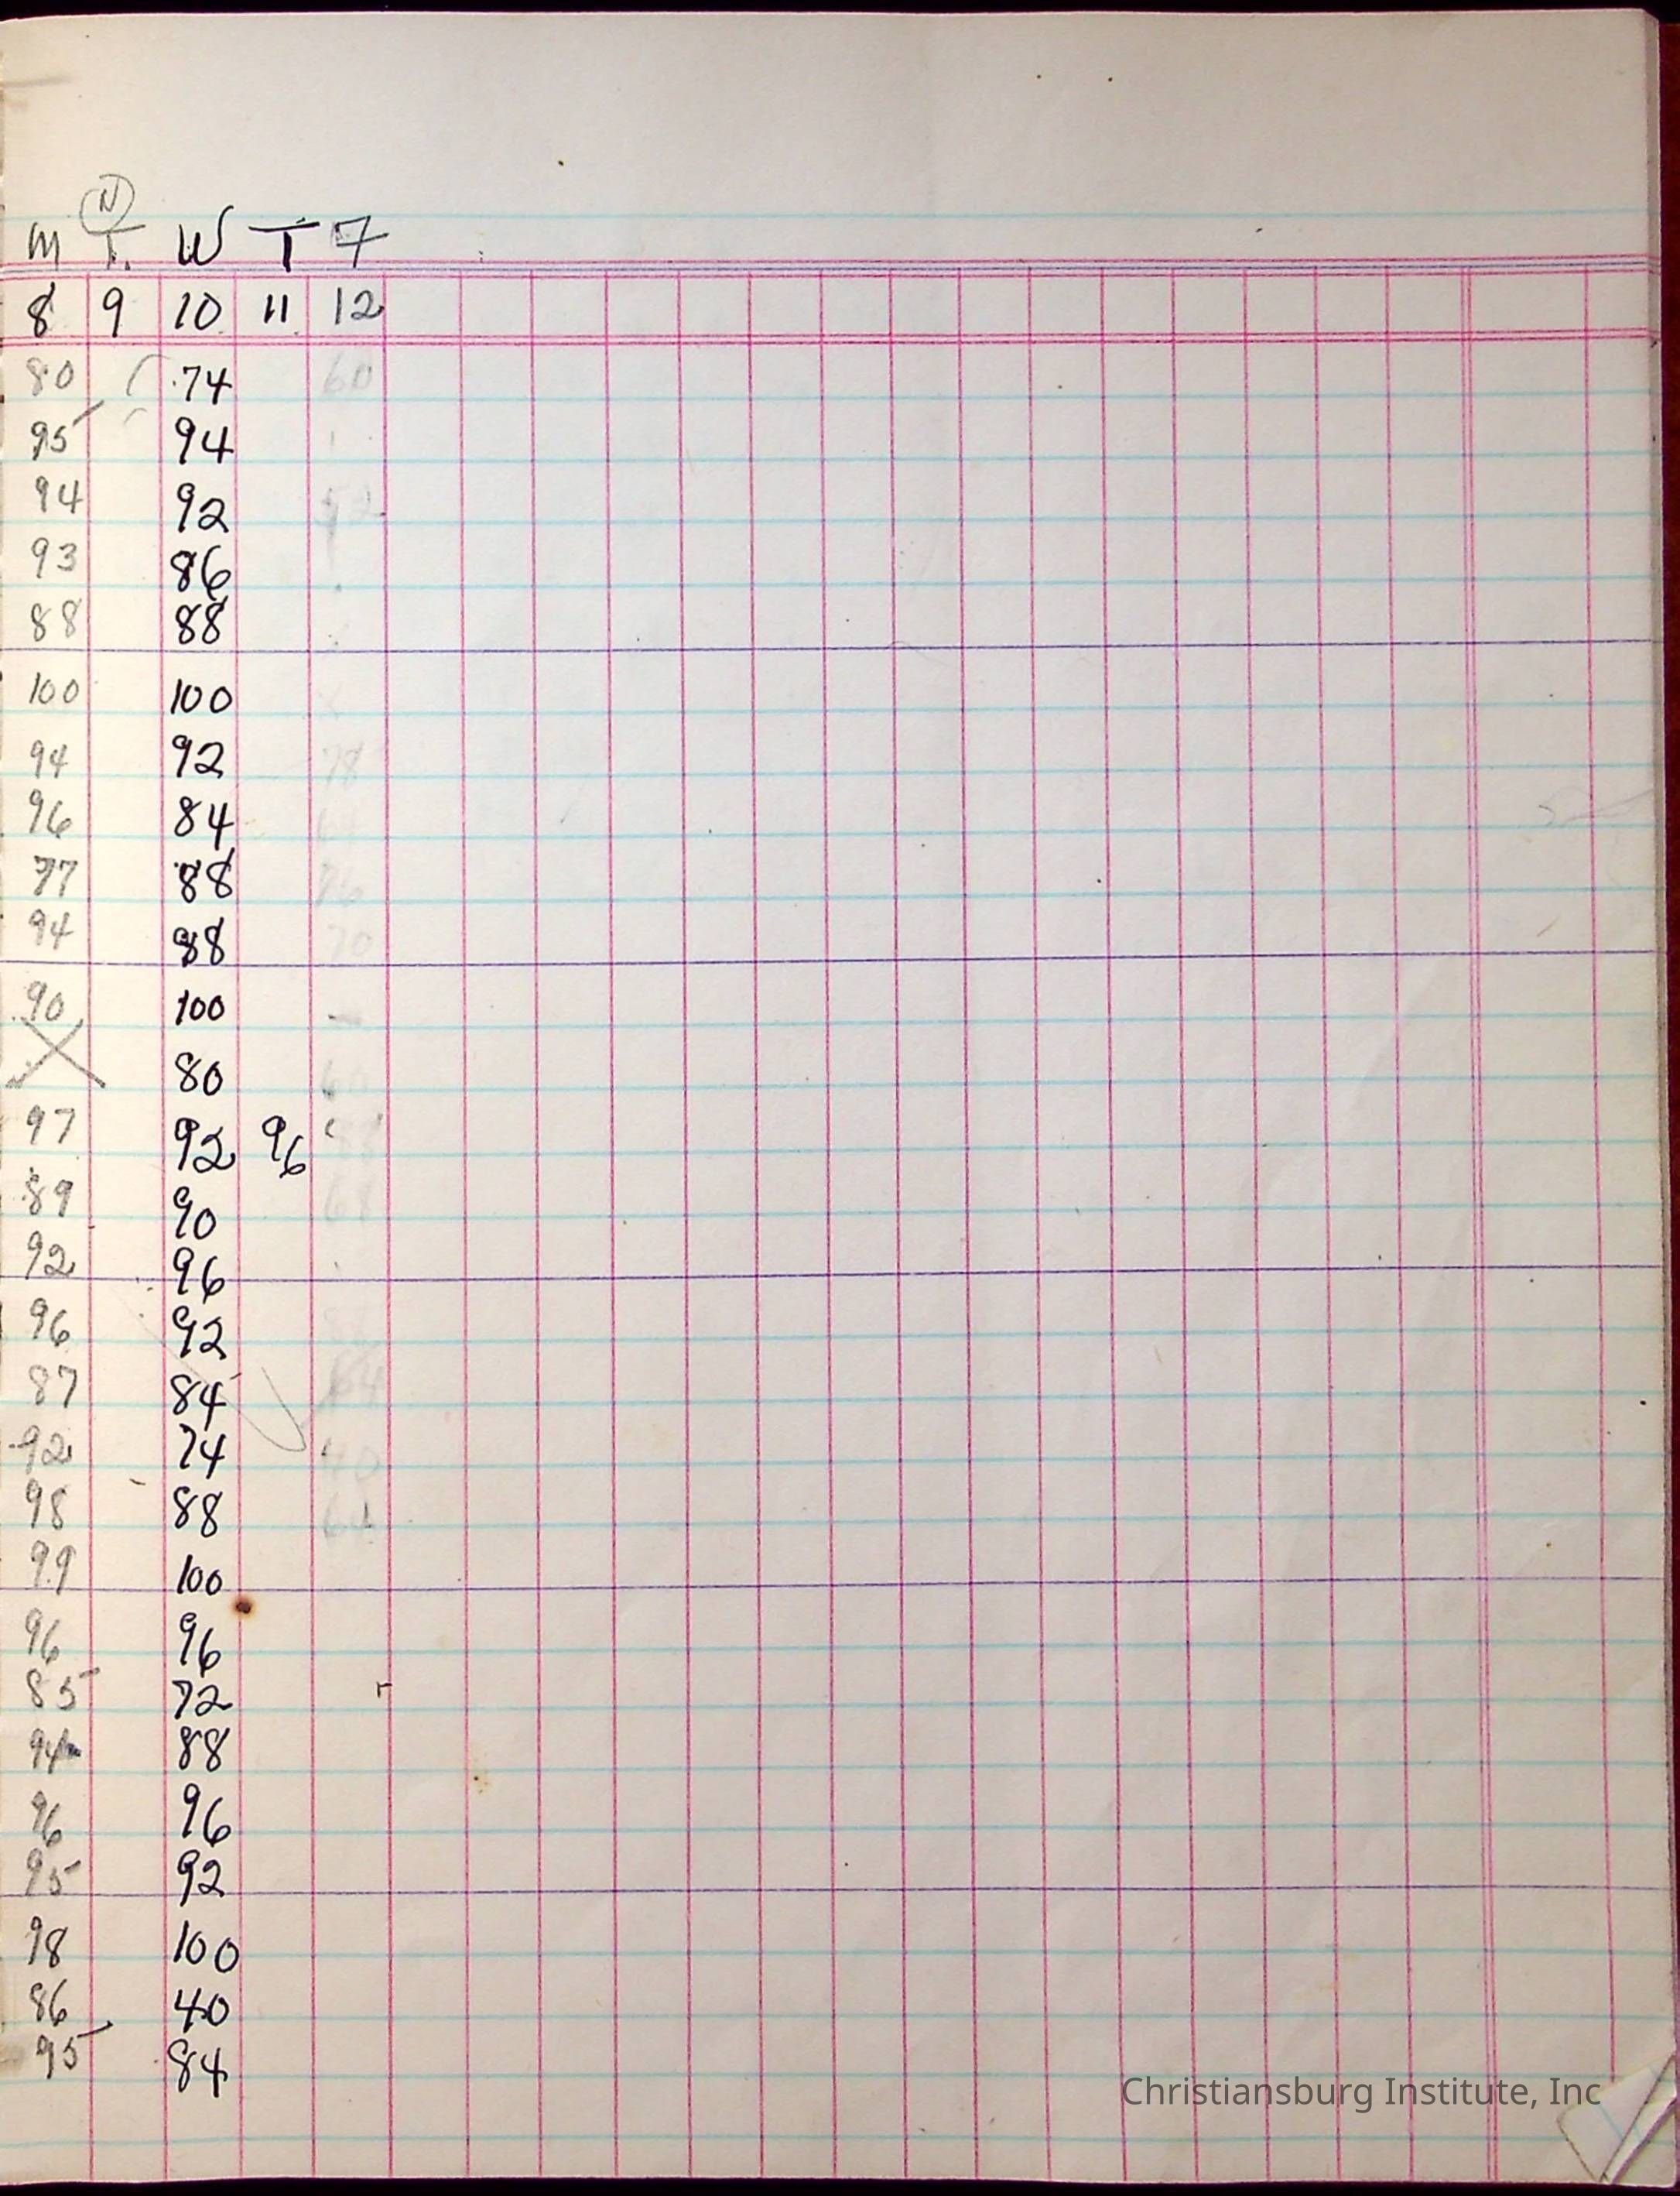 N
M T. W T F
8 9 10 11 12
80 74 60
95 94
94 92
93 86
88 88
100 100
94 92 78
96 84
77 88 76
94 88 70
90 100 –
X 80 60
97 92 96
89 90 68
92 96
96 92
87 84 64
92 74 40
98 88
99 100
96 96
85 72
94 88
96 96
95 92
98 100
86 40
95 84
Christiansburg Institute, Inc